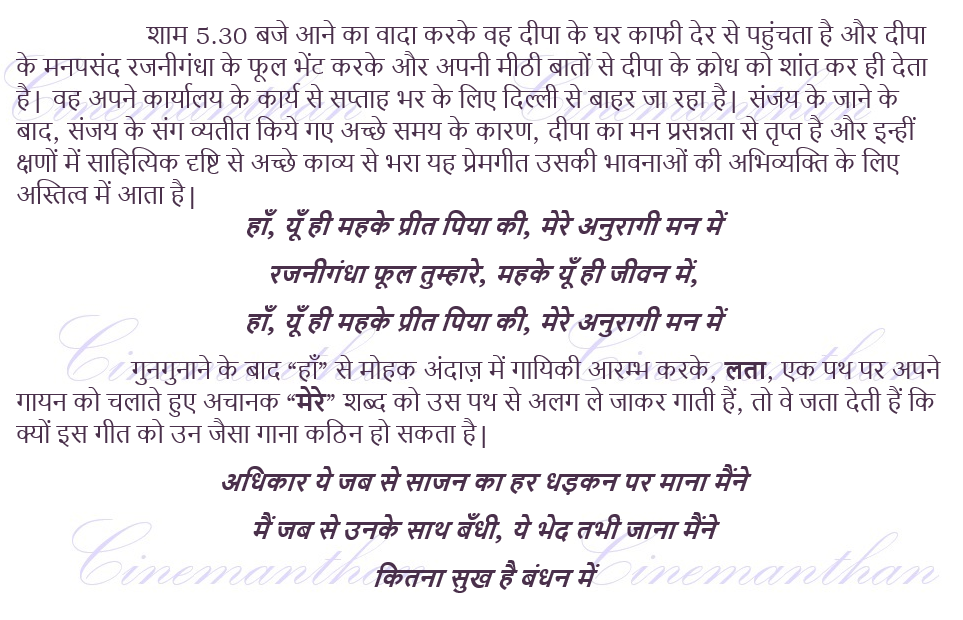 शाम 5.30 बजे आने का वादा करके वह दीपा के घर काफी देर से पहुंचता है और दीपा
के मनपसंद रजनीगंधा के फूल भेंट करके और अपनी मीठी बातों से दीपा के क्रोध को शांत कर ही देता
है| वह अपने कार्यालय के कार्य से सप्ताह भर के लिए दिल्ली से बाहर जा रहा है| संजय के जाने के
बाद, संजय के संग व्यतीत किये गए अच्छे समय के कारण, दीपा का मन प्रसन्नता से तृप्त है और इन्हीं
क्षणों में साहित्यिक दृष्टि से अच्छे काव्य से भरा यह प्रेमगीत उसकी भावनाओं की अभिव्यक्ति के लिए
अस्तित्व में आता है|
हाँ, यूँ ही महके प्रीत पिया की, मेरे अनुरागी मन में
रजनीगंधा फूल तुम्हारे, महके यूँ ही जीवन में,
हाँ, यूँ ही महके प्रीत पिया की, मेरे अनुरागी मन में
गुनगुनाने के बाद “हाँ” से मोहक अंदाज़ में गायिकी आरम्भ करके, लता, एक पथ पर अपने
गायन को चलाते हुए अचानक “मेरे” शब्द को उस पथ से अलग ले जाकर गाती हैं, तो वे जता देती हैं कि
क्यों इस गीत को उन जैसा गाना कठिन हो सकता है|
अधिकार ये जब से साजन का हर धड़कन पर माना मैंने
मैं जब से उनके साथ बँधी, ये भेद तभी जाना मैंने
कितना सुख है बंधन में
Cinemanthan
Cinemanthan
Cinemanthan
Cinemanthan
Cinemanthan
Cinemanthan